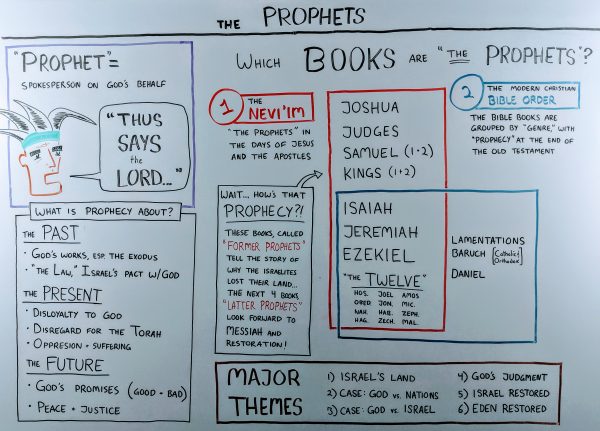 THE PROPHETS
"PROPHET"=
SPOKESPERSON ON GOD'S BEHALF
"THUS
SAYS
the
LORD..."
WHAT IS PROPHECY ABOUT?
THE PAST
• GOD'S WORKS, ESP. THE EXODUS
• "THE LAW," ISRAEL'S PACT W/GOD
THE PRESENT
• DISLOYALTY TO GOD
• DISREGARD FOR THE TORAH
• OPPRESION + SUFFERING
THE FUTURE
• GOD'S PROMISES (GOOD + BAD)
• PEACE + JUSTICE
WHICH BOOKS ARE "THE PROPHETS"?
1 THE
NEVI'IM
"THE PROPHETS" IN
THE DAYS OF JESUS
AND THE APOSTLES
WAIT... HOW'S THAT
PROPHECY?!
THESE BOOKS, CALLED
"FORMER PROPHETS"
TELL THE STORY OF
WHY THE ISRAELITES
LOST THEIR LAND...
THE NEXT 4 BOOKS
"LATTER PROPHETS"
LOOK FORWARD TO
MESSIAH AND
RESTORATION!
JOSHUA
JUDGES
SAMUEL (1+2)
KINGS (1+2)
ISAIAH
JEREMIAH
EZEKIEL
"THE TWELVE"
HOS. JOEL AMOS
OBED JON. MIC.
NAH. HAB. ZEPH.
HAG. ZECH. MAL.
2 THE MODERN CHRISTIAN
BIBLE ORDER
THE BIBLE BOOKS ARE
GROUPED BY "GENRE," WITH
"PROPHECY" AT THE END OF
THE OLD TESTAMENT
LAMENTATIONS
BARUCH [Catholic/
Orthodox]
DANIEL
MAJOR
THEMES
1) ISRAEL'S LAND
2) CASE: GOD vs. NATIONS
3) CASE: GOD vs. ISRAEL
4) GOD'S JUDGMENT
5) ISRAEL RESTORED
6) EDEN RESTORED